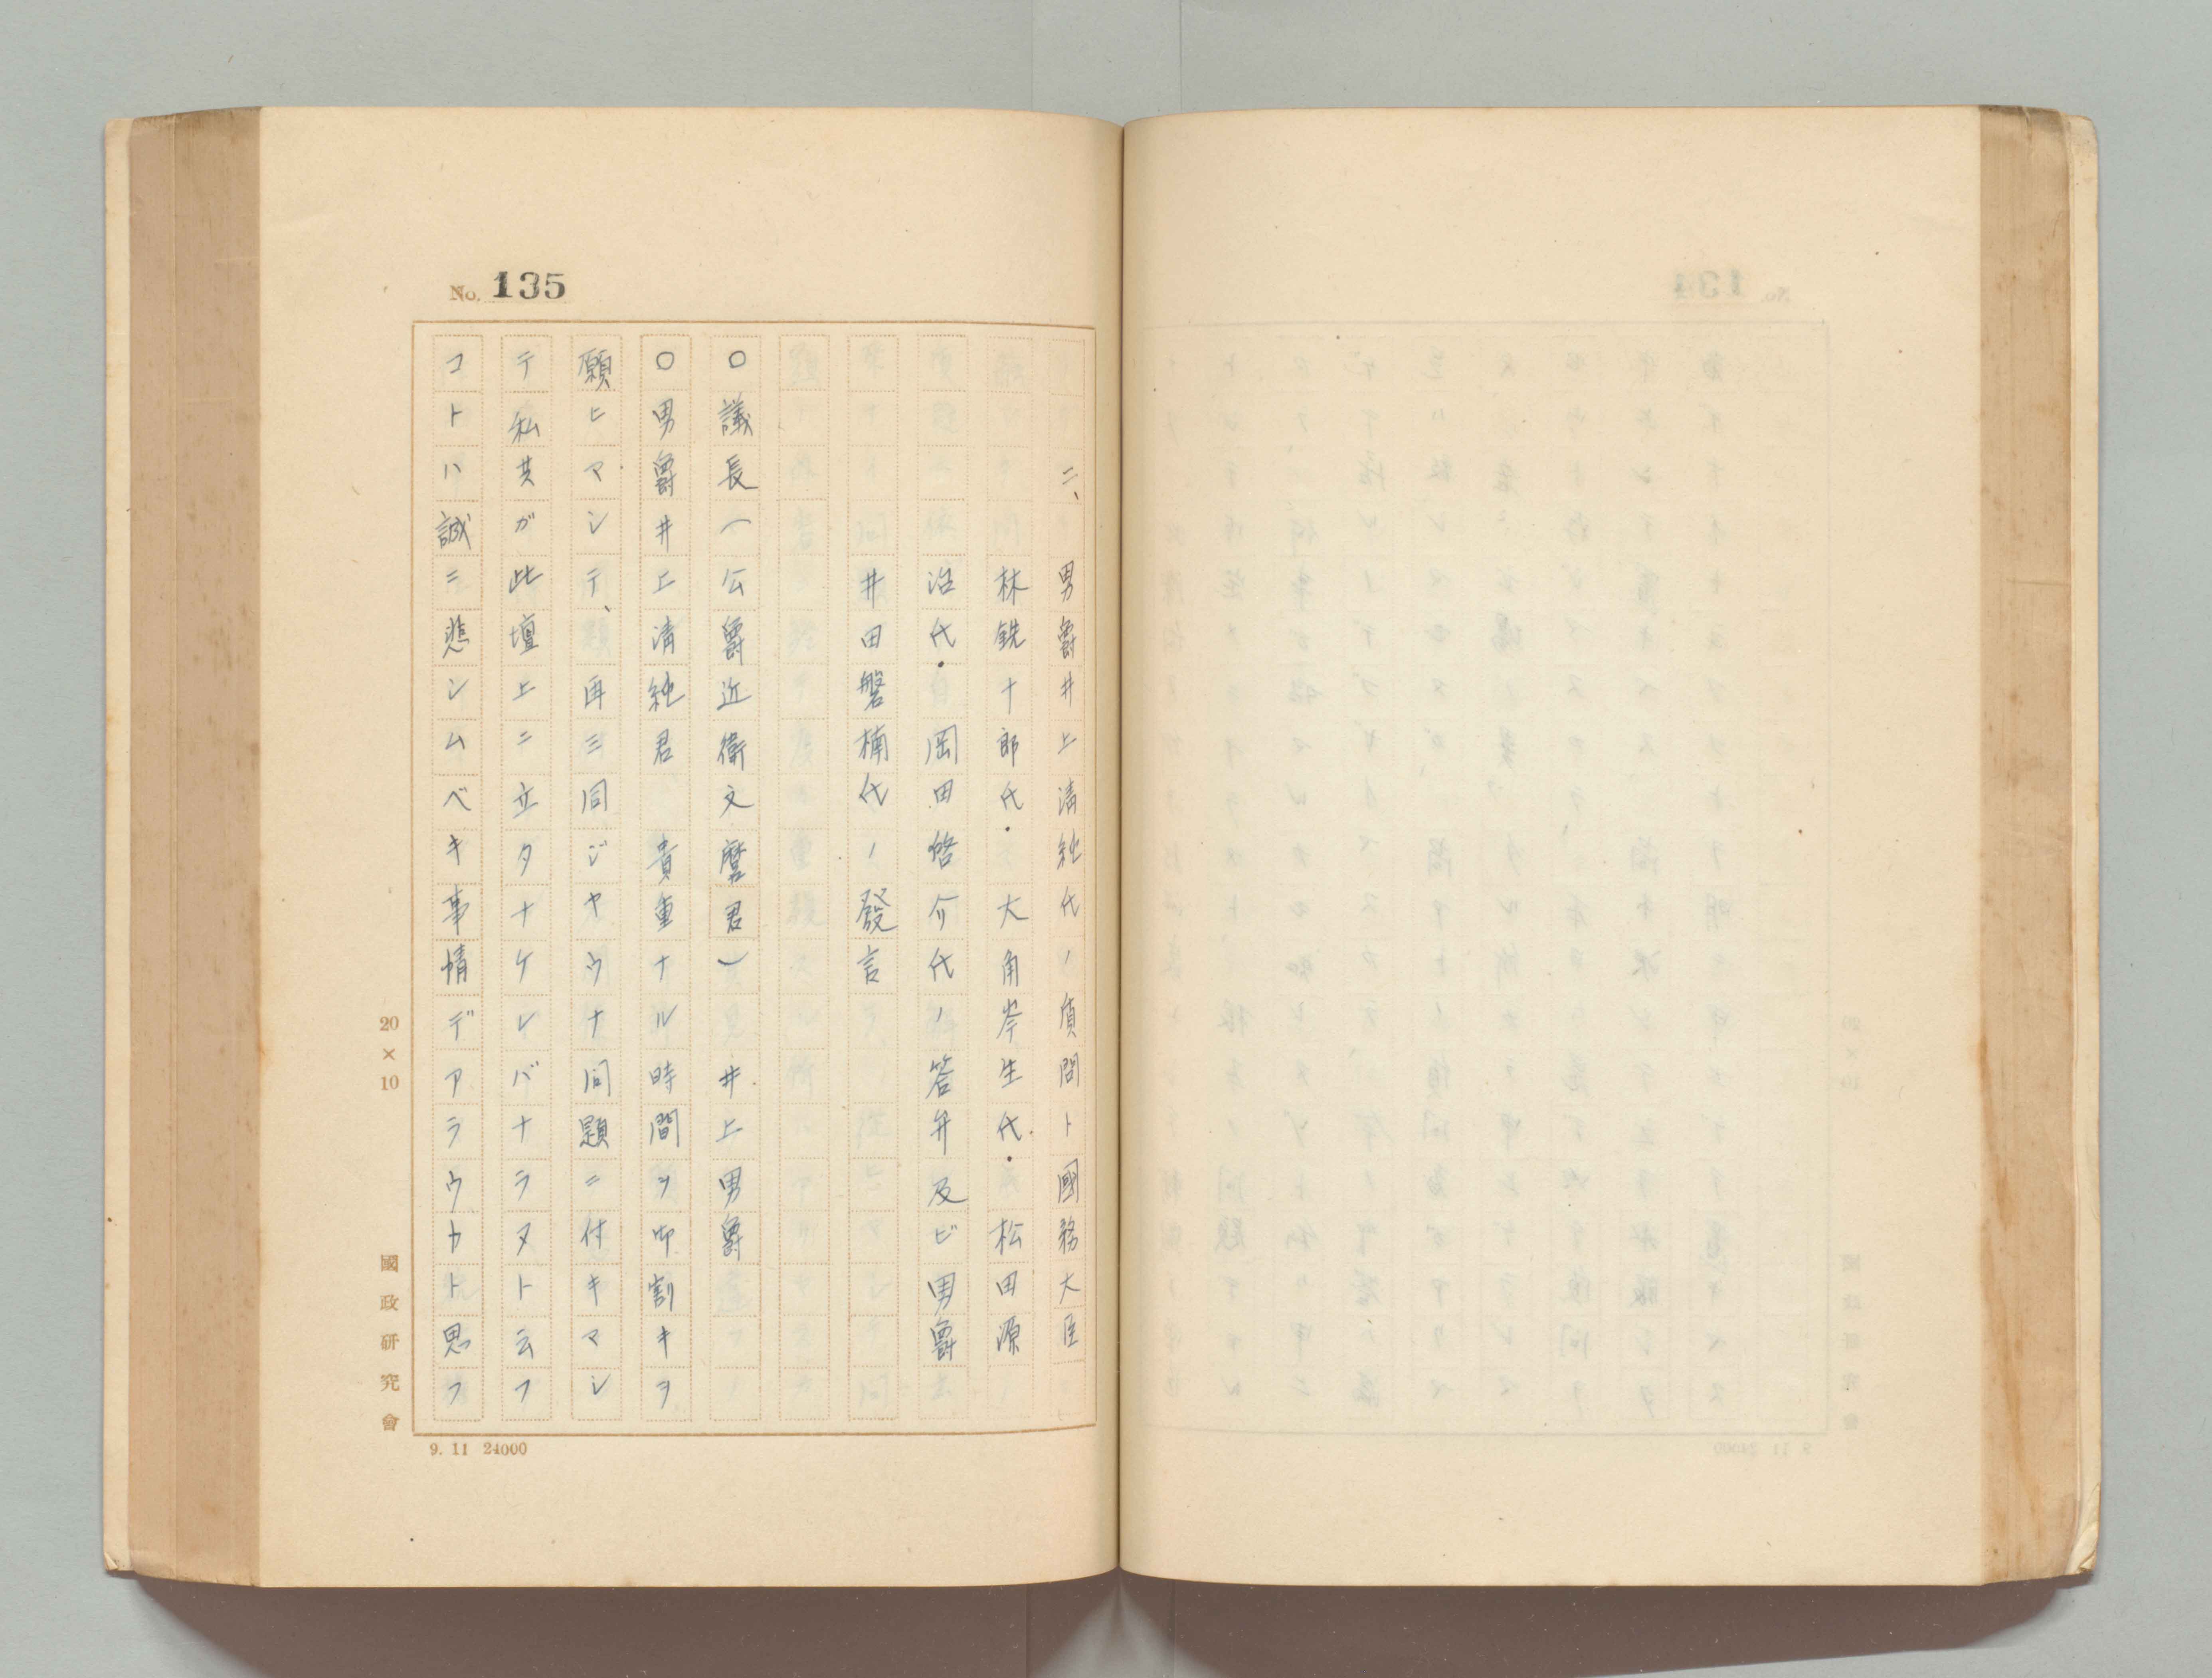 No. 135
二、男爵井上清純氏ノ質問ト國務大臣
林銑十郎氏・大角岑生氏・松田源
治氏・岡田啓介氏ノ答弁及ビ男爵
井田磐楠氏ノ發言
○議長(公爵近衛文麿君) 井上男爵
○男爵井上清純君 貴重ナル時間ヲ御割キヲ
願ヒマシテ、再三同ジヤウナ問題ニ付キマシ
テ私共ガ此壇上ニ立タナケレバナラヌト云フ
コトハ誠ニ悲シムベキ事情デアラウカト思フ
20×10
國政研究會
9. 11 24000